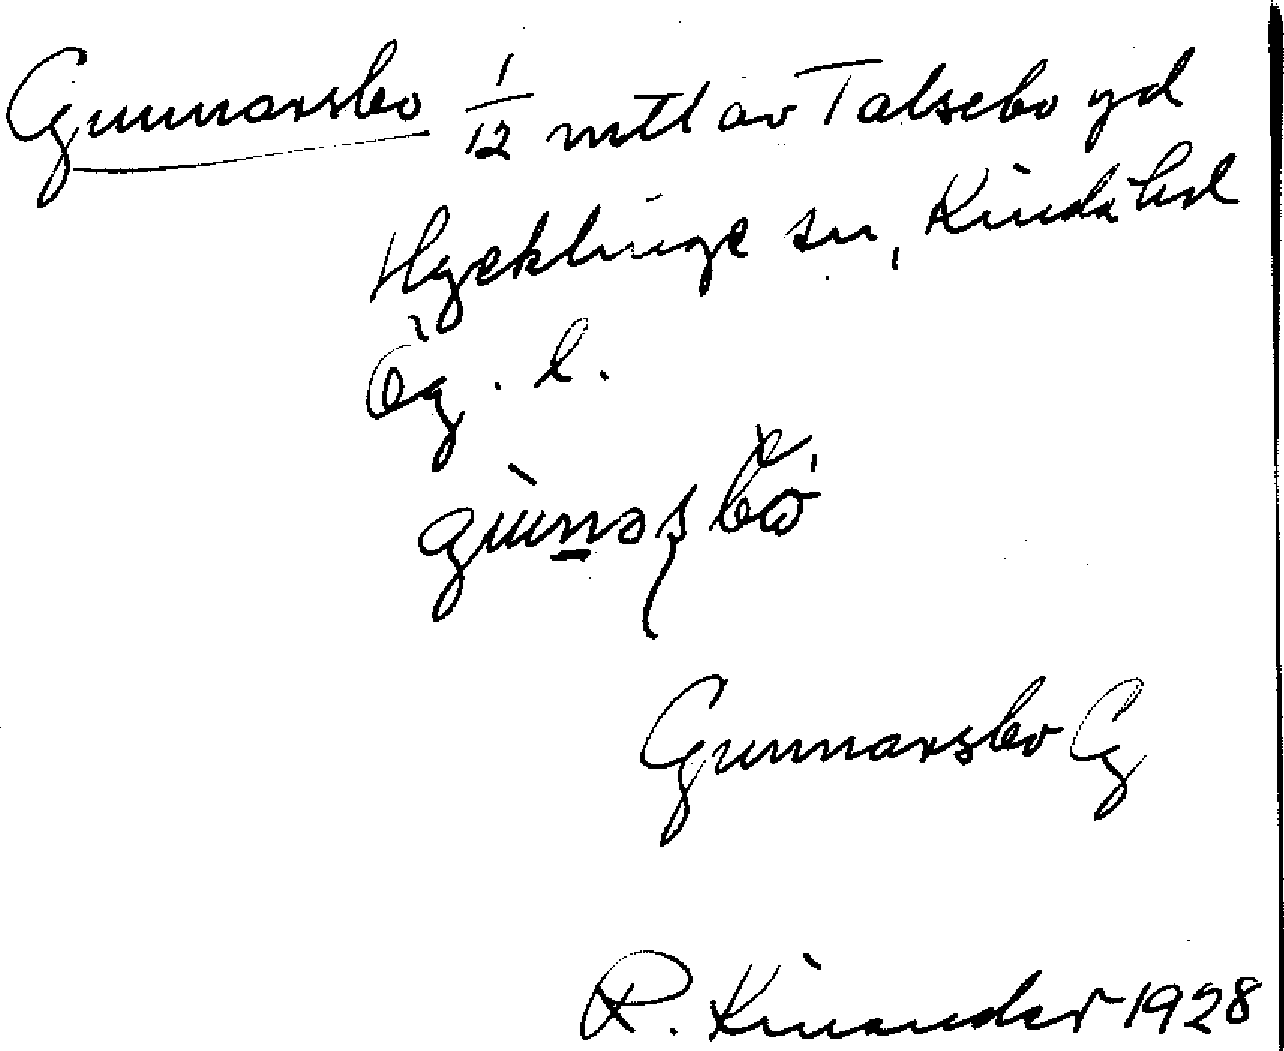 Gunnarsbo 1/12 mtl av Talsebo gd
Hycklinge sn, Kinda hd
Ög. l.
Gunnarsbo G
R. Kinander 1928